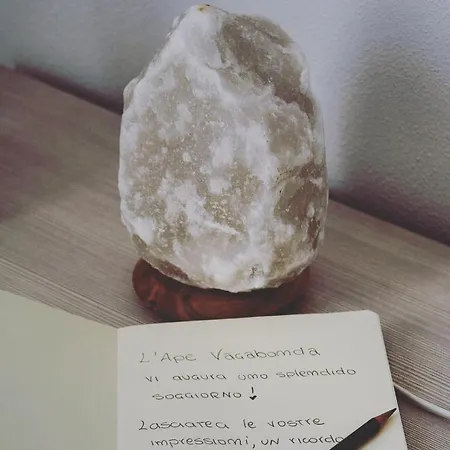 L'Ape Vagabonda
vi augura uno splendido
soggiorno!
Lasciateci le vostre
impressioni, un ricordo